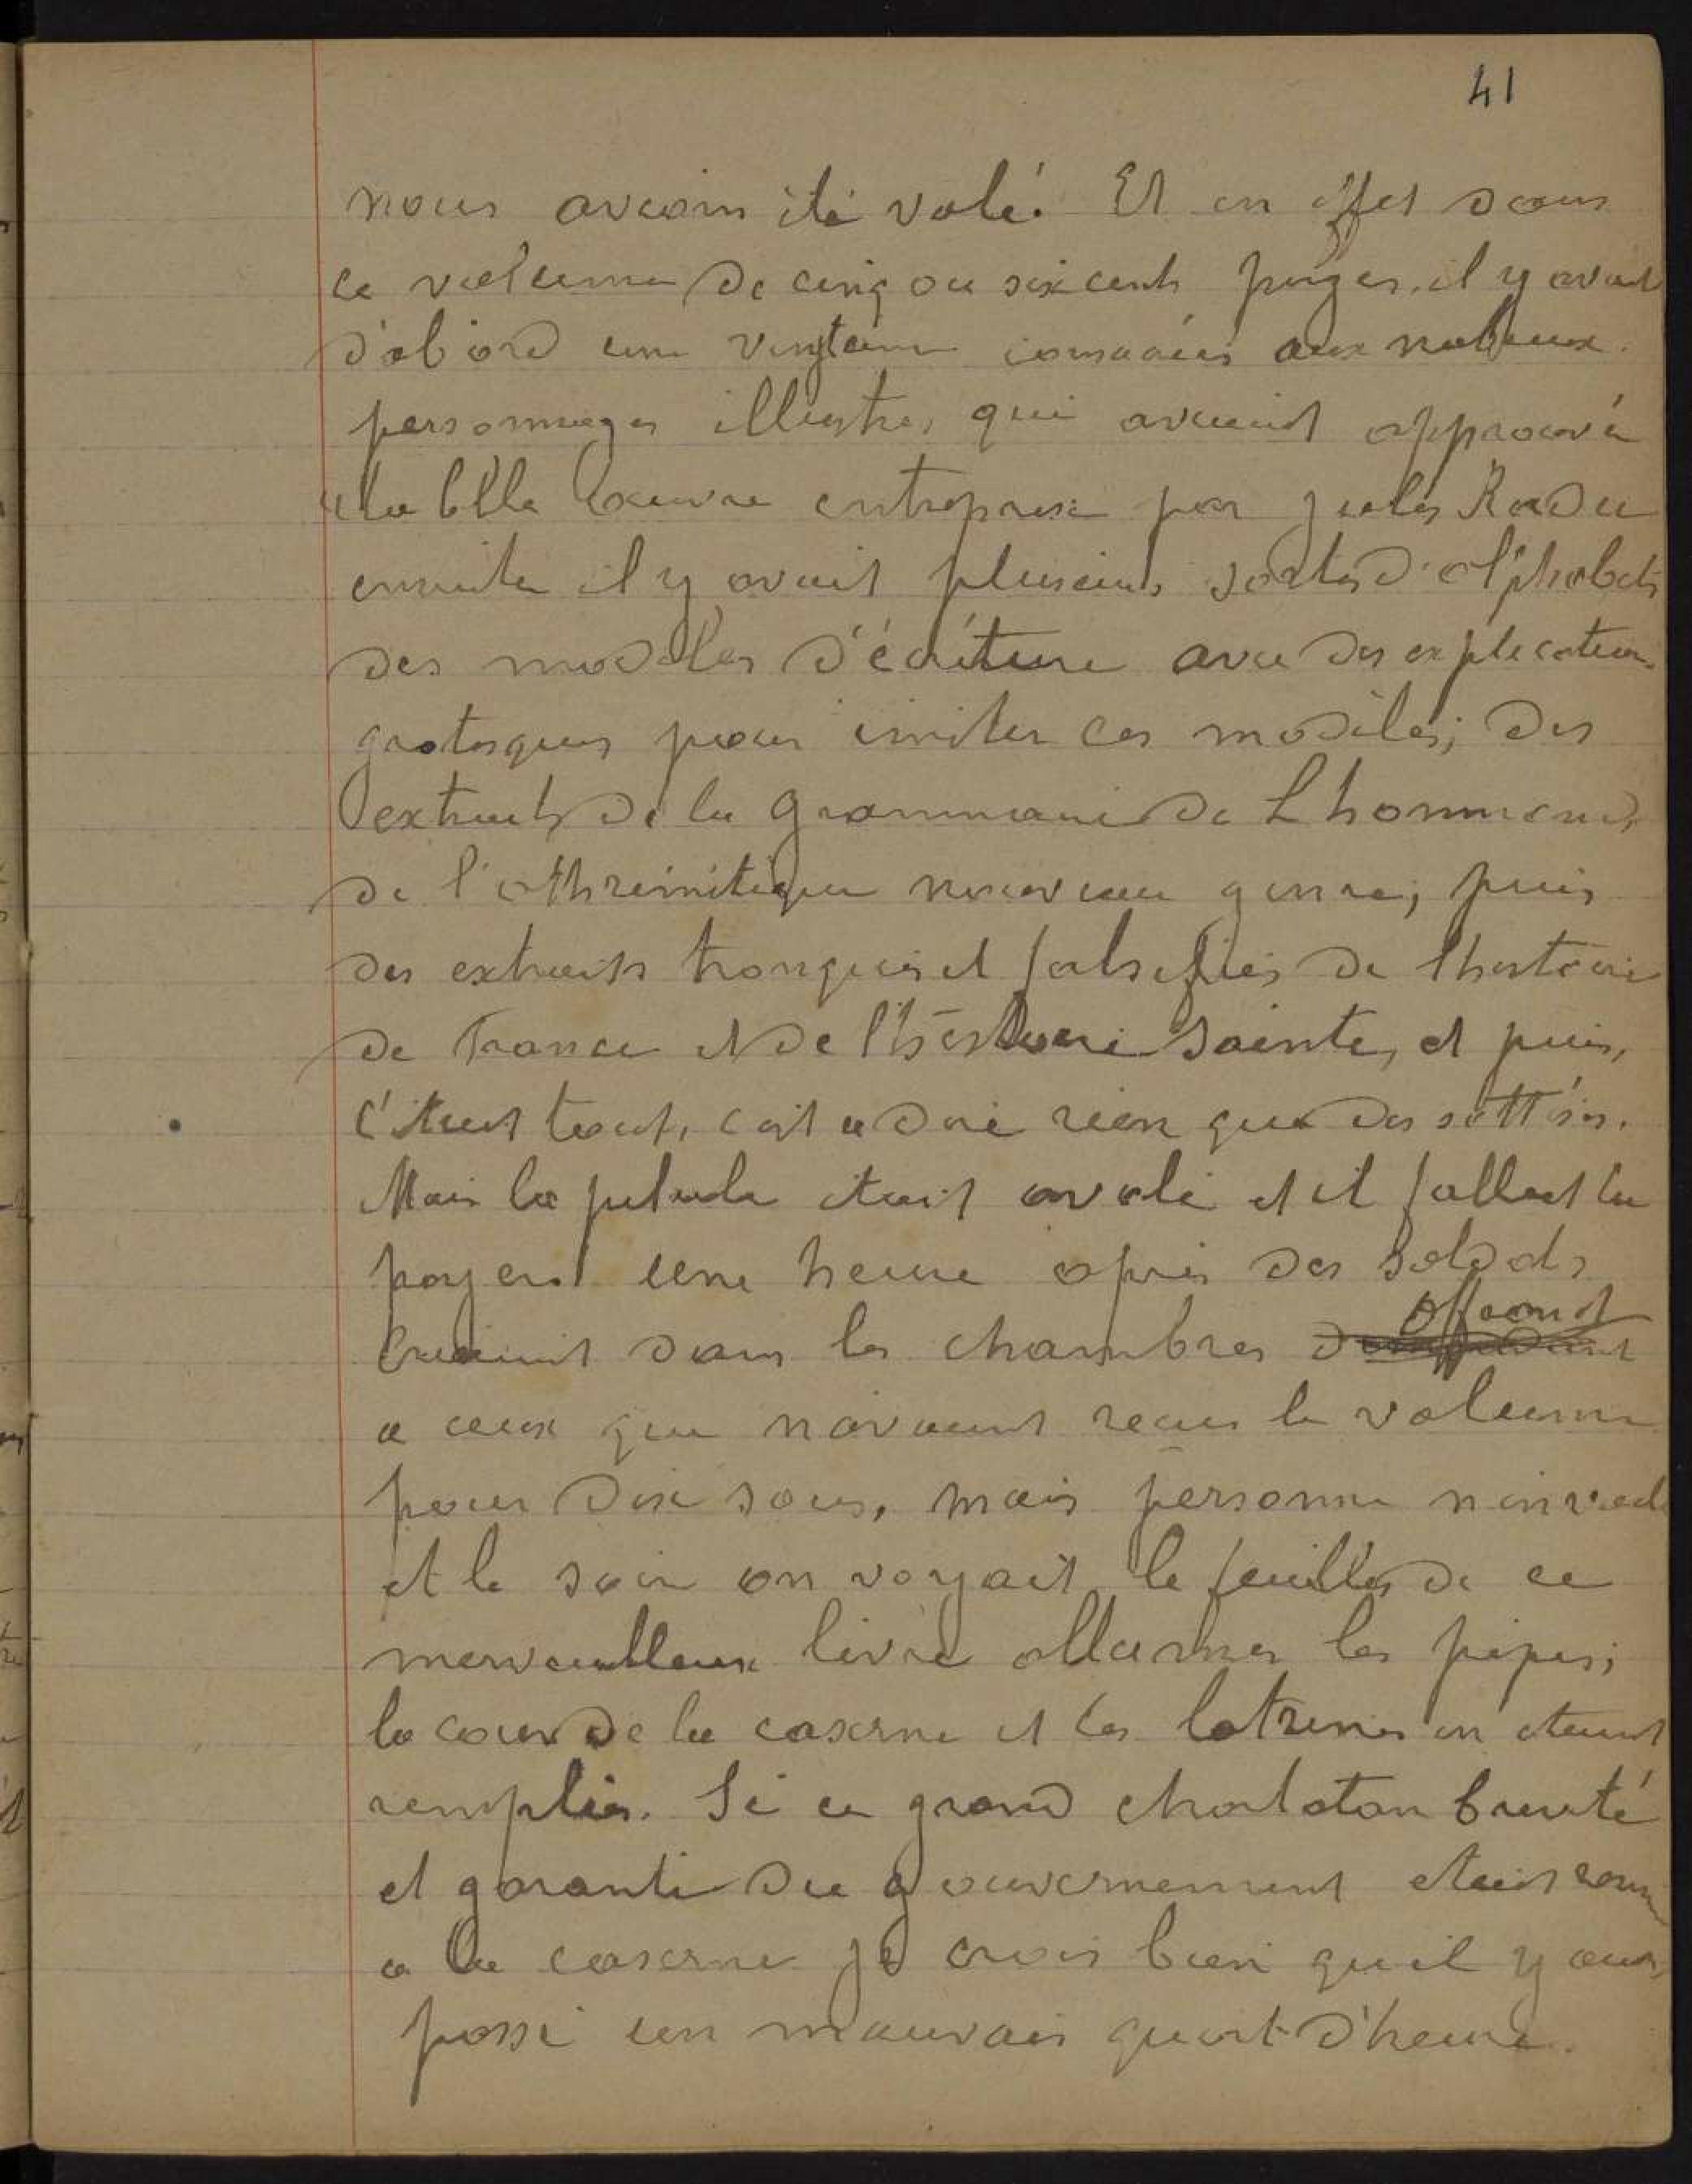 41
nous avions été volé. Et en effet dans
ce volume de cinq ou six cents pages. il y avait
d'abord une vingtaine consacrées aux
personnages illustres qui avaient approuvé
la belle œuvre entreprise par Jules Radu
ensuite il y avait plusieurs sortes d'alphabets
des modèles d'écriture avec des explications
grotesques pour imiter ces modèles; des
extraits de la grammaire de Lhommond,
de l'athrémitique nouveau genre; puis
des extraits tronqués et falsifiés de lhistoire
de France et de l'histoire Sainte, et puis,
c'était tout, c'est a dire rien que des sottises.
Mais la pilule était avalé et il fallait la
payer. une heure après des soldats
criaient dans les chambres offrant
a ceux que navaient recu le volume
pour dix sous, mais personne n'en voul
et le soir on voyait le feuilles de ce
merveilleux livre allumer les pipes;
la cour de la caserne et les latrines en étaient
remplies. Si ce grand charlatan breveté
et garanti du gouvernement etait
a la caserne je crois bien qu'il y
passé un mauvais quart d'heure.